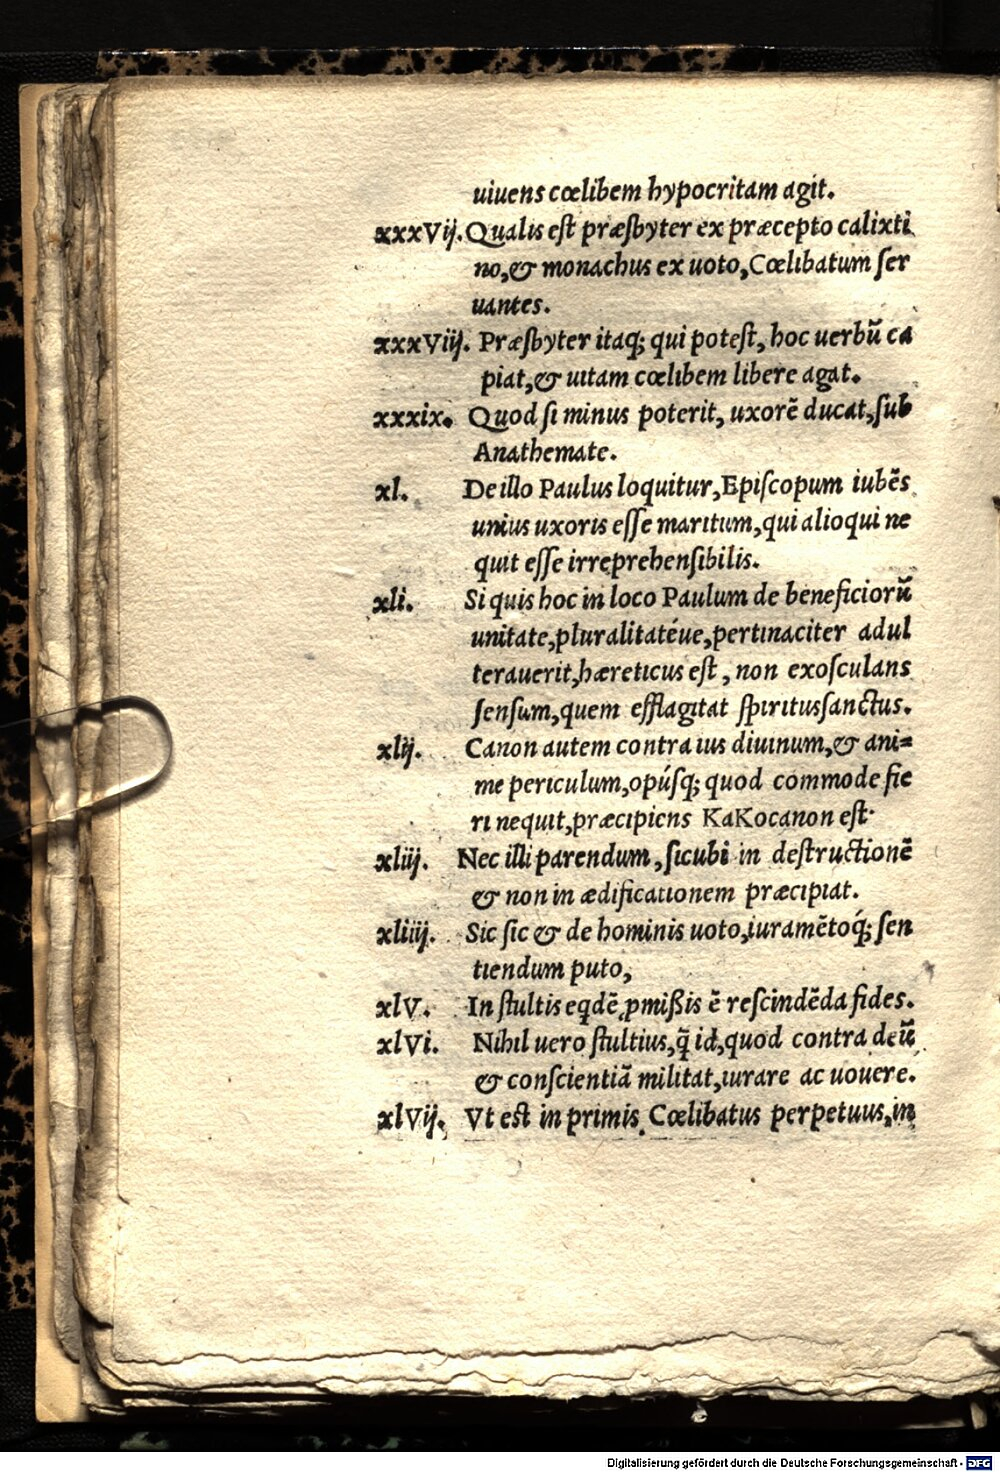 uiuens cœlibem hypocritam agit.
xxxVij. Qualis est præsbyter ex præcepto calixti
no, & monachus ex uoto, Cœlibatum ser
uantes.
xxxViij. Præsbyter itaq; qui potest, hoc uerbũ ca
piat, & uitam cœlibem libere agat.
xxxix. Quod si minus poterit, uxorẽ ducat, sub
Anathemate.
xl. De illo Paulus loquitur, Episcopum iubẽs
unius uxoris esse maritum, qui alioqui ne
quit esse irreprehensibilis.
xli. Si quis hoc in loco Paulum de beneficiorũ
unitate, pluralitatéue, pertinaciter adul
terauerit, hæreticus est, non exosculans
sensum, quem efflagitat spiritussanctus.
xlij. Canon autem contra ius diuinum, & ani=
me periculum, opúsq; quod commode fie
ri nequit, præcipiens KaKocanon est·
xliij. Nec illi parendum, sicubi in destructionẽ
& non in ædificationem præcipiat.
xliiij. Sic sic & de hominis uoto, iuramẽtoq́; sen
tiendum puto,
xlV. In stultis eqdẽ ꝓmißis ẽ rescindẽda fides.
xlVi. Nihil uero stultius, q̃ id, quod contra deũ
& conscientiã militat, iurare ac uouere.
xlVij. Vt est in primis Cœlibatus perpetuus, in
Digitalisierung gefördert durch die Deutsche Forschungsgemeinschaft - DFG